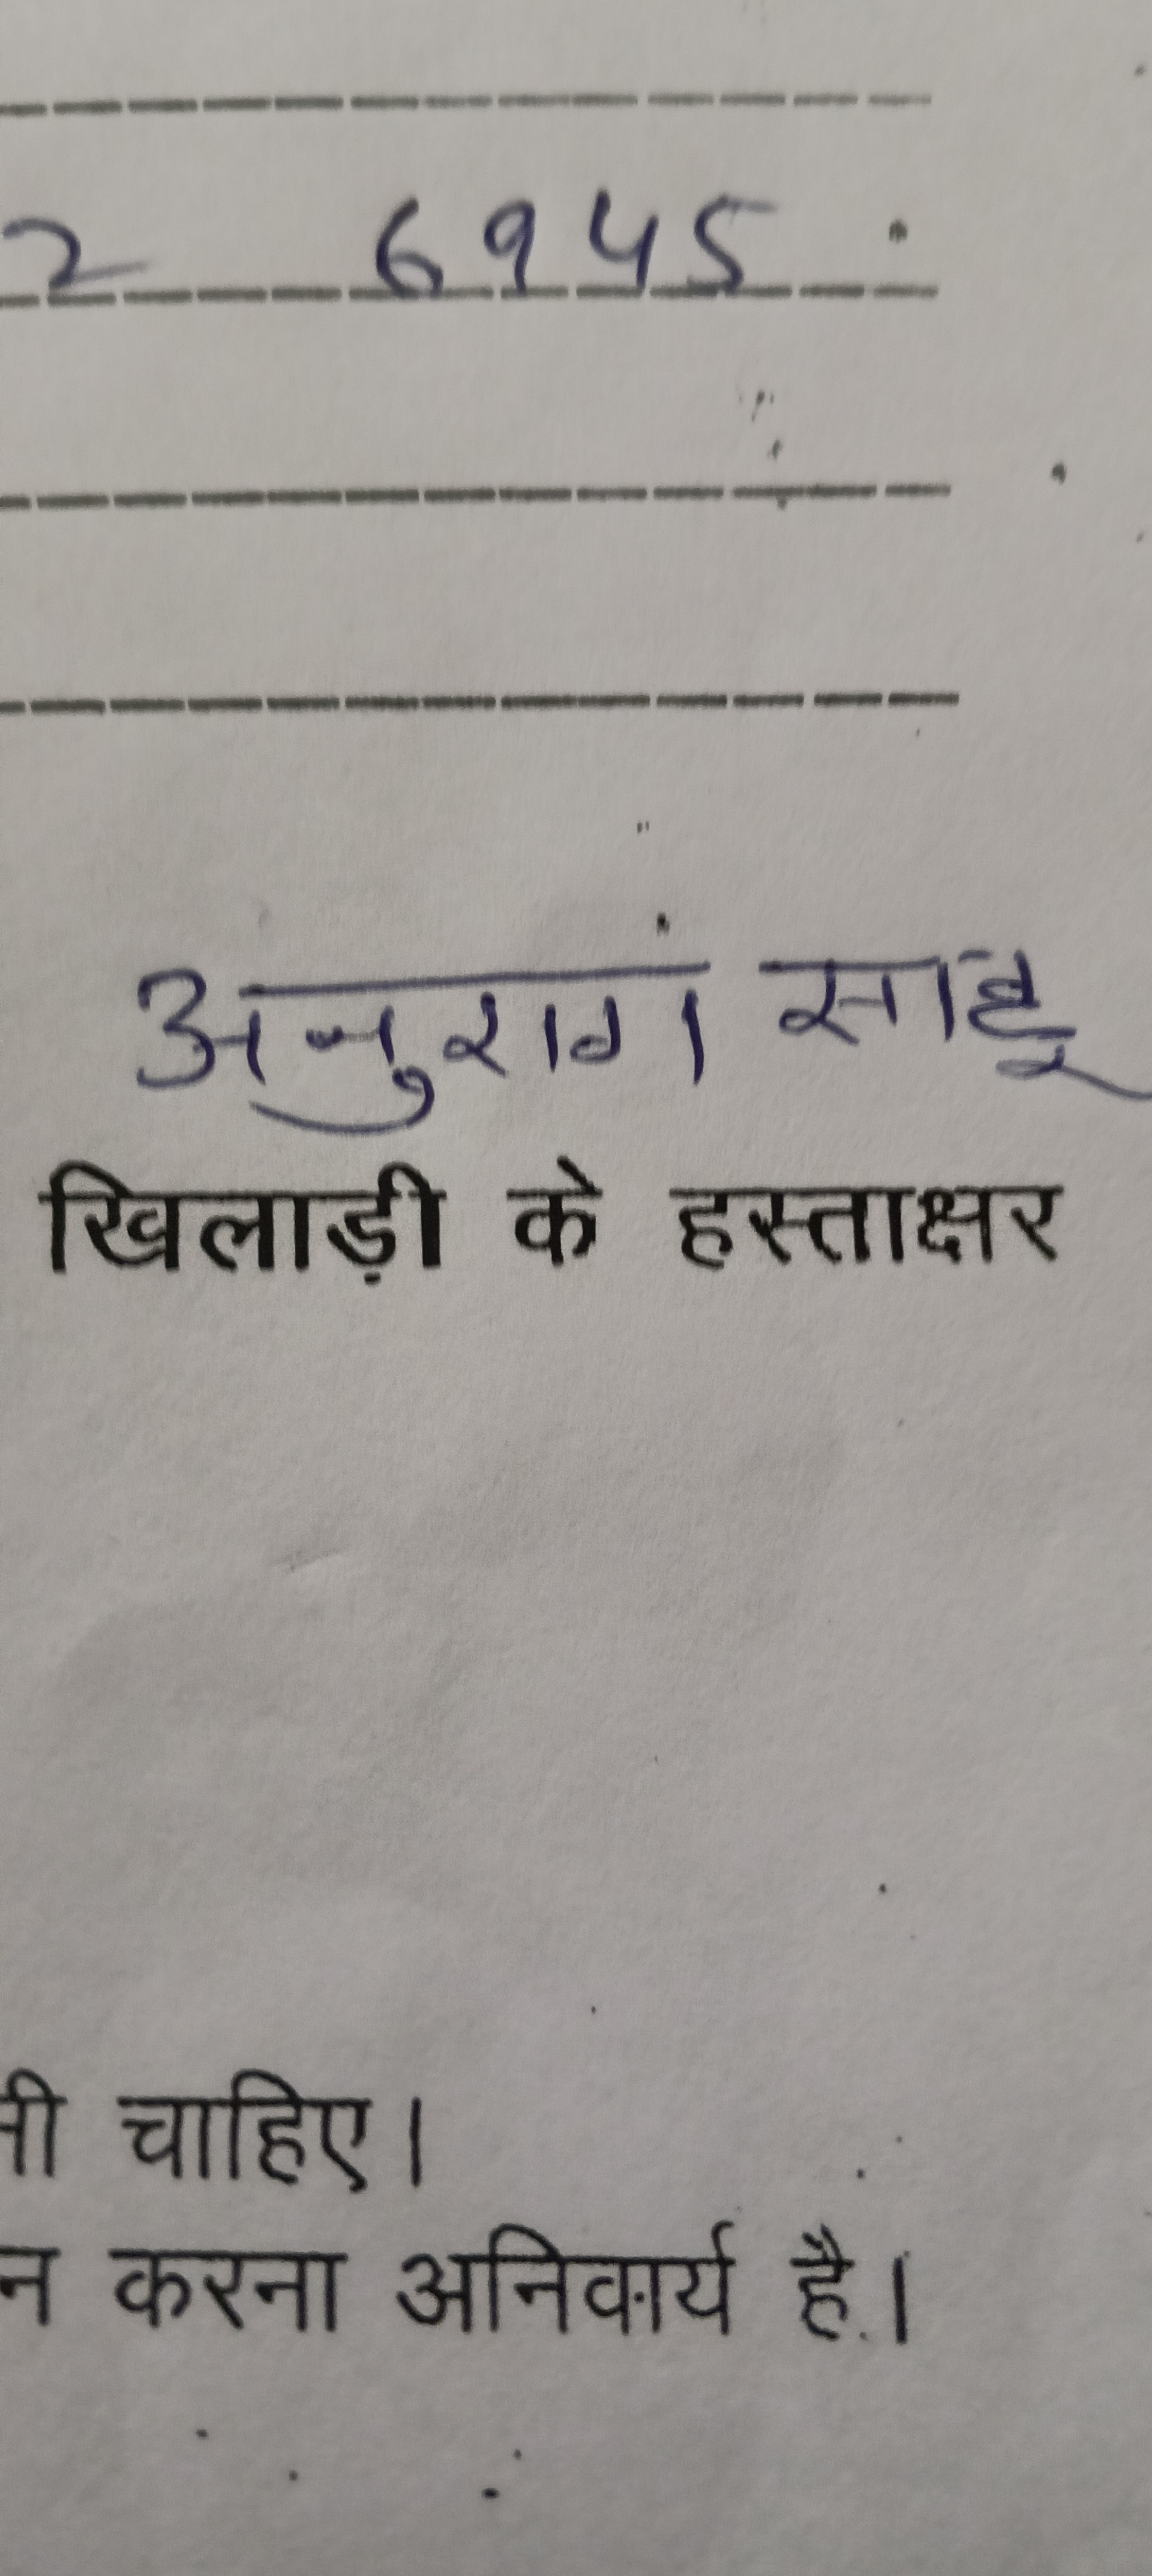 2 6945
अनुराग साहू
खिलाड़ी के हस्ताक्षर
नी चाहिए।
न करना अनिवार्य है।